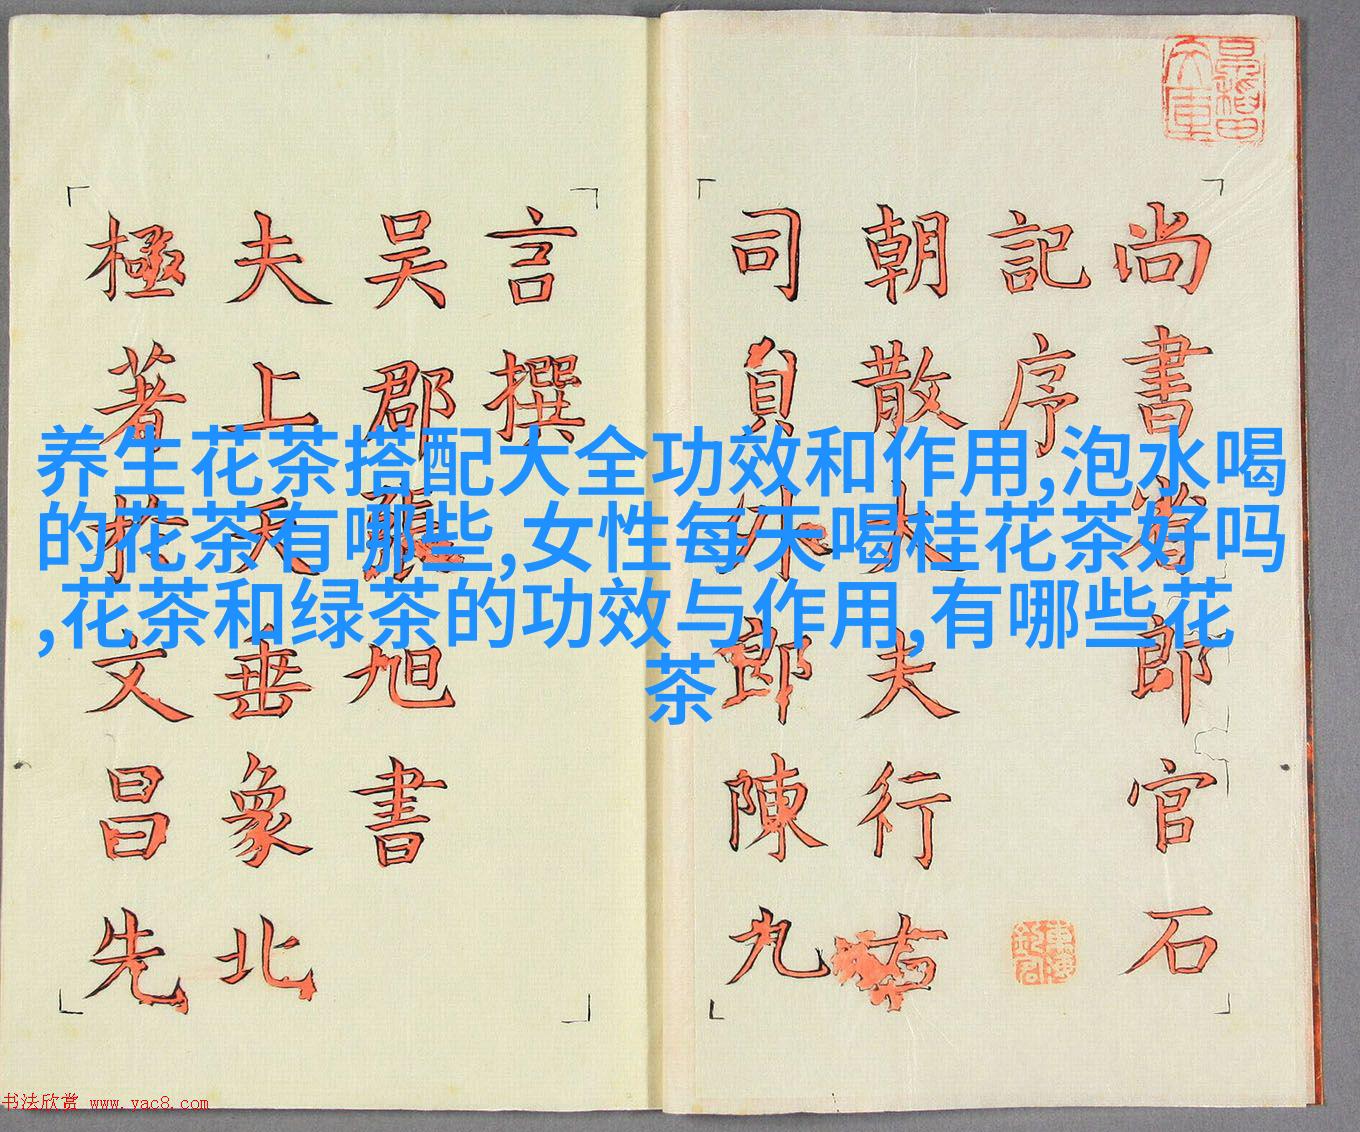 养生花茶搭配大全功效和作用,泡水喝
的花茶有哪些,女性每天喝桂花茶好吗
,花茶和绿茶的功效与作用,有哪些花
茶
尚書省郎官石
記序
朝散大夫行右
司員外郎陳九
言撰
吴郡張旭書
夫上天垂象北
極著於文昌先
书法欣赏 www.yac8.com